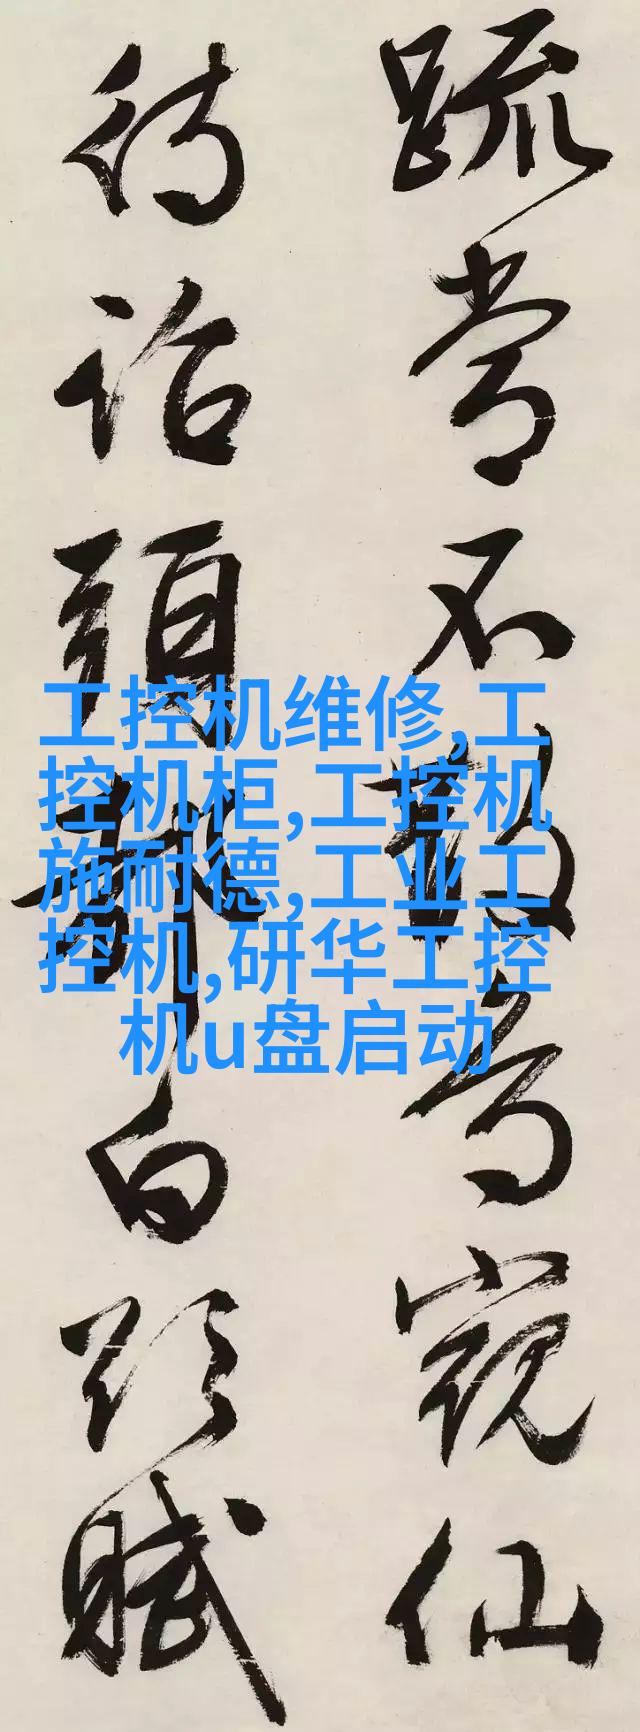 工控机维修,工
控机柜,工控机
施耐德,工业工
控机,研华工控
机u盘启动
常不敢窺仙
待詔頭白賦